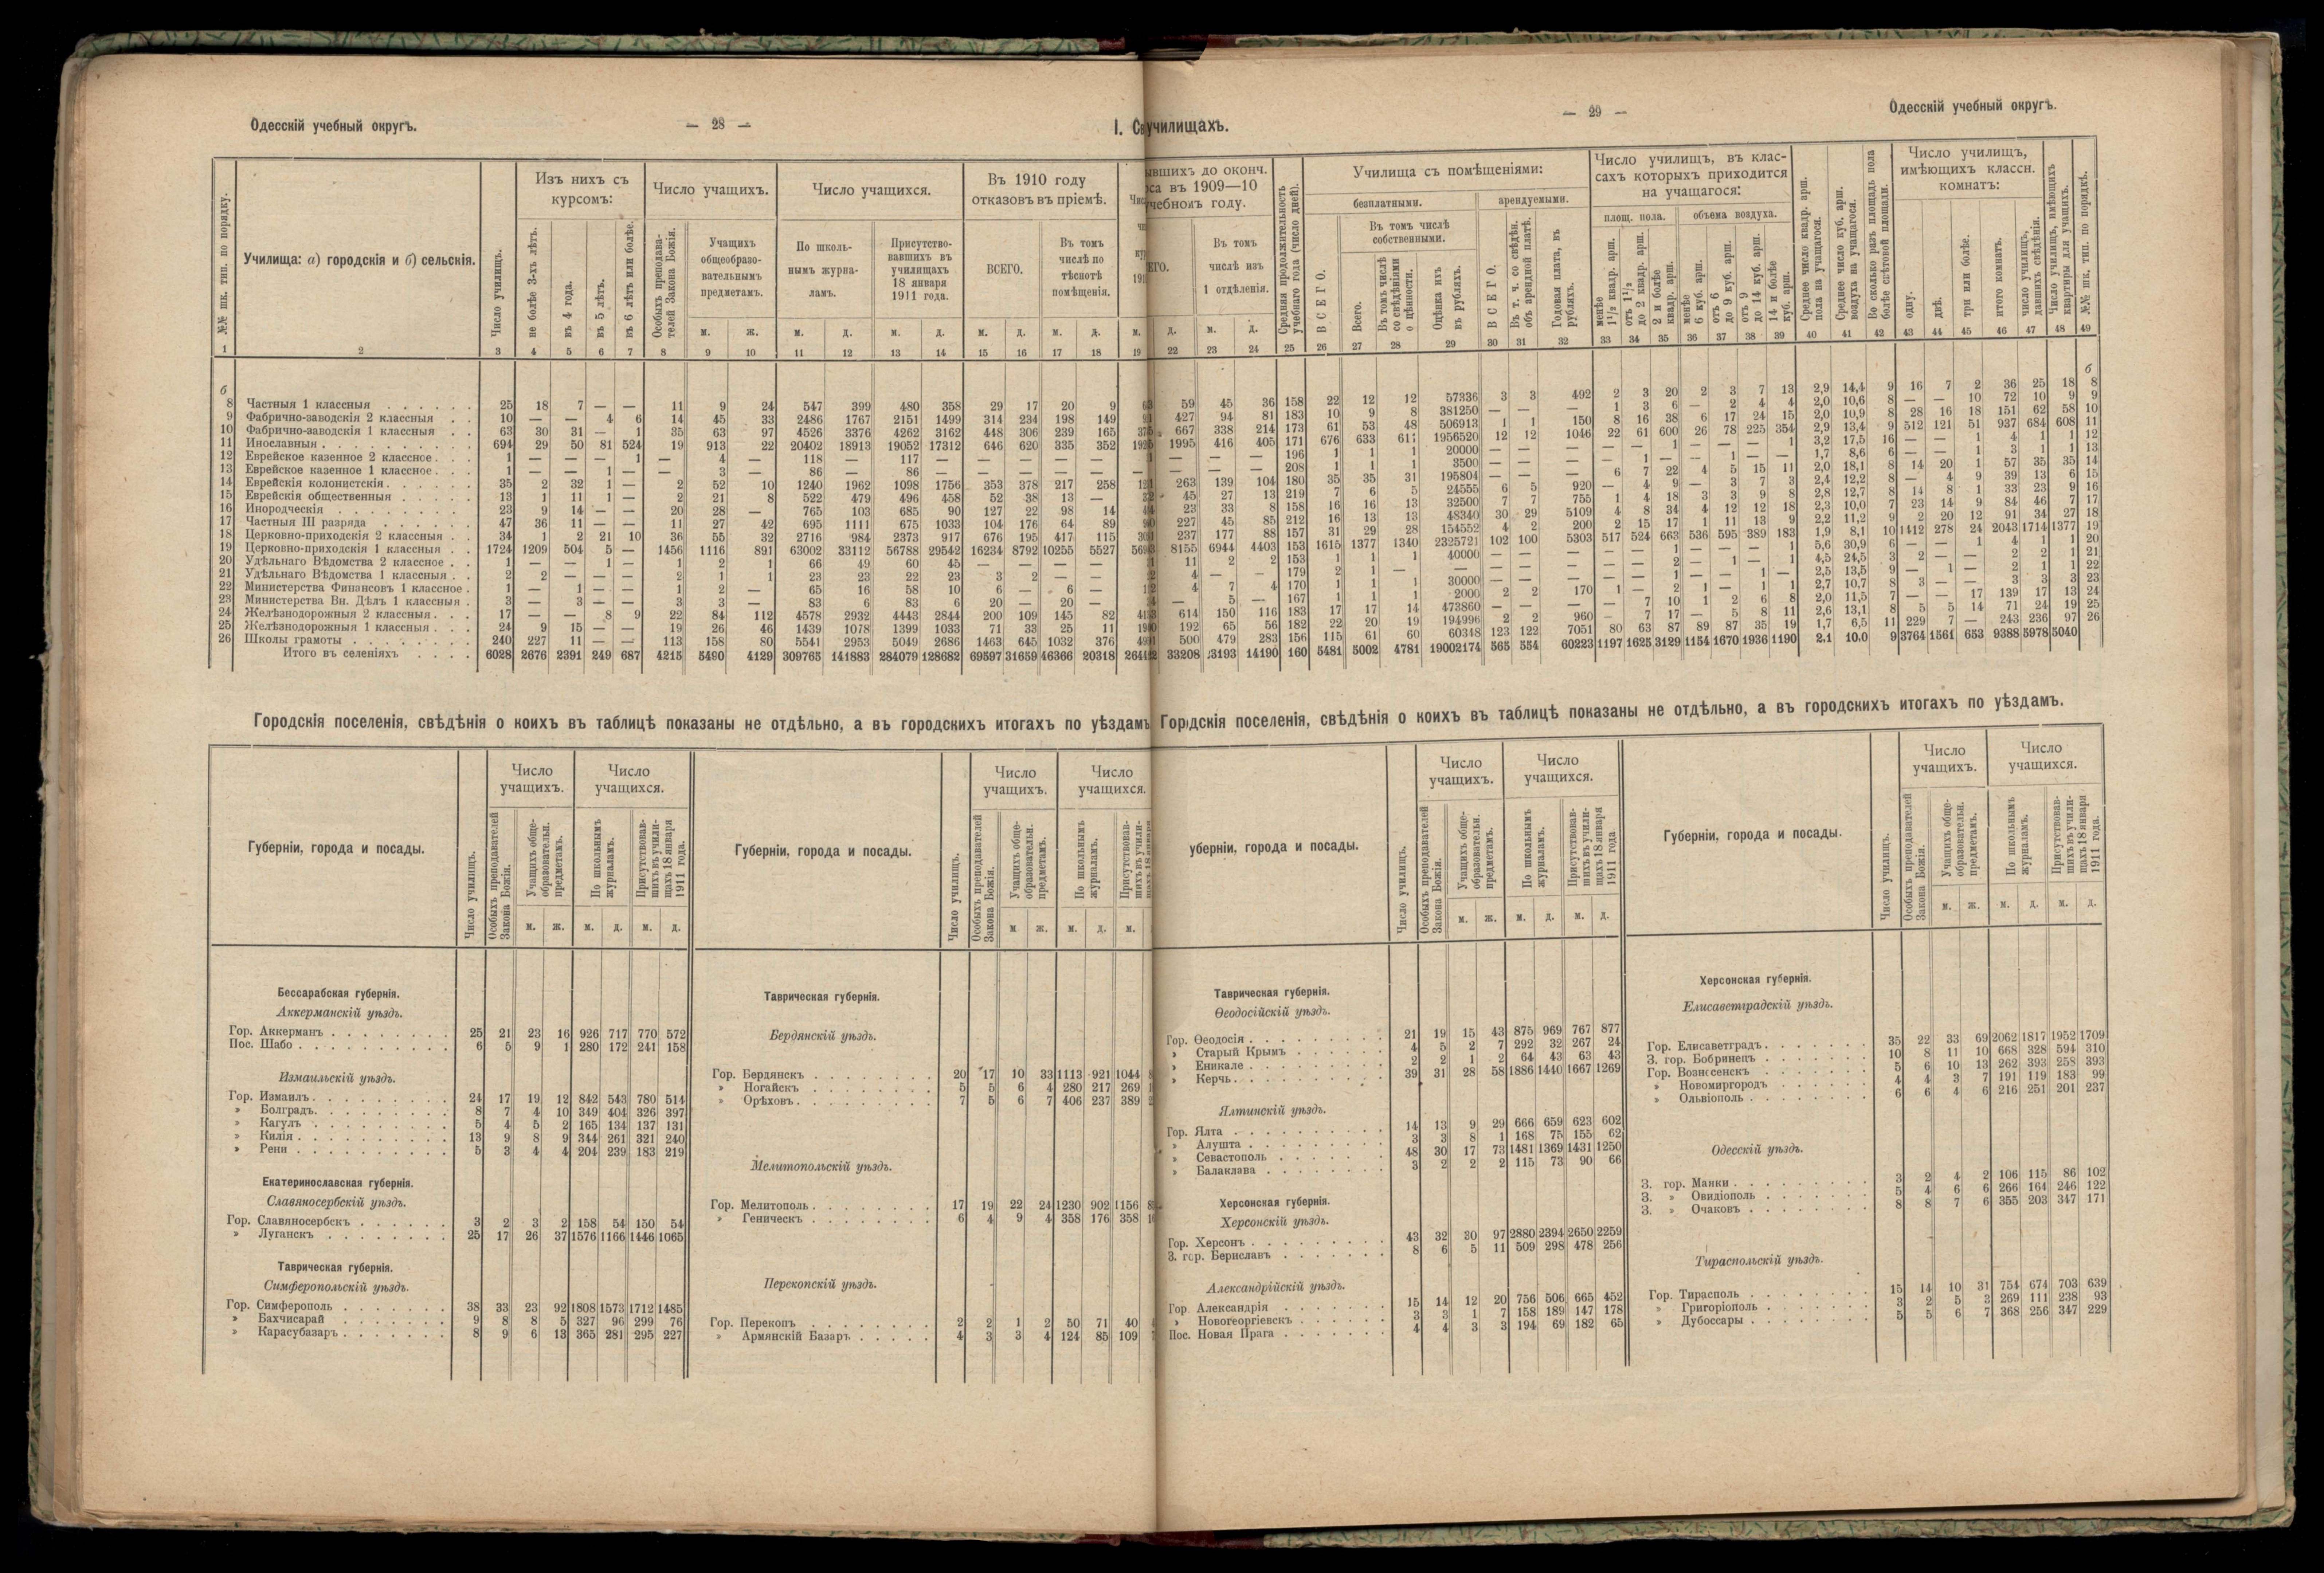 Одесскій учебный округъ.
— 28 —
I. Св
училищахъ.
— 29 —
Одесскій учебный округъ.
№№ шк. тип. по порядку.
Училища: а) городскія и б) сельскія.
Число училищъ.
Изъ нихъ съ курсомъ:
не болѣе 3-хъ лѣтъ.
въ 4 года.
въ 5 лѣтъ.
въ 6 лѣтъ или болѣе.
Число учащихъ.
Особыхъ преподавателей Закона Божія.
Учащихъ общеобразовательнымъ предметамъ.
Число учащихся.
По школьнымъ журналамъ.
Присутствовавшихъ въ училищахъ 18 января 1911 года.
Въ 1910 году отказовъ въ пріемѣ.
ВСЕГО.
Въ томъ числѣ по тѣснотѣ помѣщенія.
м. ж. м. д. м. д. м. д. м. д. м.
1 2 3 4 5 6 7 8 9 10 11 12 13 14 15 16 17 18 19
б
8 Частныя 1 классныя 25 18 7 — — 11 9 24 547 399 480 358 29 17 20 9
9 Фабрично-заводскія 2 классныя 10 — — 4 6 14 45 33 2486 1767 2151 1499 314 234 198 149
10 Фабрично-заводскія 1 классныя 63 30 31 — 1 35 63 97 4526 3376 4262 3162 448 306 239 165
11 Инославныя 694 29 50 81 524 19 913 22 20402 18913 19052 17312 646 620 335 352
12 Еврейское казенное 2 классное 1 — — — 1 — 4 — 118 — 117 — — — — —
13 Еврейское казенное 1 классное 1 — — 1 — — 3 — 86 — 86 — — — — —
14 Еврейскія колонистскія 35 2 32 1 — 2 52 10 1240 1962 1098 1756 353 378 217 258
15 Еврейскія общественныя 13 1 11 1 — 2 21 8 522 479 496 458 52 38 13 —
16 Инородческія 23 9 14 — — 20 28 — 765 103 685 90 127 22 98 14
17 Частныя III разряда 47 36 11 — — 11 27 42 695 1111 675 1033 104 176 64 89
18 Церковно-приходскія 2 классныя 34 1 2 21 10 36 55 32 2716 984 2373 917 676 195 417 115
19 Церковно-приходскія 1 классныя 1724 1209 504 5 — 1456 1116 891 63002 33112 56788 29542 16234 8792 10255 5527
20 Удѣльнаго Вѣдомства 2 классное 1 — — 1 — 1 2 1 66 49 60 45 — — — —
21 Удѣльнаго Вѣдомства 1 классныя 2 2 — — — 2 1 1 23 23 22 23 3 2 — —
22 Министерства Финансовъ 1 классное 1 — 1 — — 1 2 — 65 16 58 10 6 — 6 —
23 Министерства Вн. Дѣлъ 1 классныя 3 — 3 — — 3 3 — 83 6 83 6 20 — 20 —
24 Желѣзнодорожныя 2 классныя 17 — — 8 9 22 84 112 4578 2932 4443 2844 200 109 145 82
25 Желѣзнодорожныя 1 классныя 24 9 15 — — 19 26 46 1439 1078 1399 1033 71 33 25 11
26 Школы грамоты 240 227 11 — — 113 158 80 5541 2953 5049 2686 1463 645 1032 376
Итого въ селеніяхъ 6028 2676 2391 249 687 4215 5490 4129 309765 141883 284079 128682 69597 31659 46366 20318
ывшихъ до оконч.
са въ 1909—10
чебномъ году.
Въ томъ числѣ изъ 1 отдѣленія.
Средняя продолжительность учебнаго года (число дней).
Училища съ помѣщеніями:
безплатными.
арендуемыми.
ВСЕГО.
Въ томъ числѣ собственными.
Всего.
Въ томъ числѣ со свѣдѣніями о цѣнности.
Оцѣнка ихъ въ рубляхъ.
ВСЕГО.
Въ т. ч. со свѣдѣн. объ арендной платѣ.
Годовая плата, въ рубляхъ.
Число училищъ, въ классахъ которыхъ приходится на учащагося:
площ. пола.
объема воздуха.
менѣе 1½ квадр. арш.
отъ 1½ до 2 квадр. арш.
2 и болѣе квадр. арш.
менѣе 6 куб. арш.
отъ 6 до 9 куб. арш.
отъ 9 до 14 куб. арш.
14 и болѣе куб. арш.
Среднее число квадр. арш. пола на учащагося.
Среднее число куб. арш. воздуха на учащагося.
Во сколько разъ площадь пола болѣе свѣтовой площади.
Число училищъ, имѣющихъ классн. комнатъ:
одну.
двѣ.
три или болѣе.
итого комнатъ.
число училищъ, давшихъ свѣдѣнія.
Число училищъ, имѣющихъ квартиры для учащихъ.
№№ шк. тип. по порядкѣ.
д. м. д.
22 23 24 25 26 27 28 29 30 31 32 33 34 35 36 37 38 39 40 41 42 43 44 45 46 47 48 49
б
59 45 36 158 22 12 12 57336 3 3 492 2 3 20 2 3 7 13 2,9 14,4 9 16 7 2 36 25 18 8
427 94 81 183 10 9 8 381250 — — — 1 3 6 — 2 4 4 2,0 10,6 8 — — 10 72 10 9 9
667 338 214 173 61 53 48 506913 1 1 150 8 16 38 6 17 24 15 2,0 10,9 8 28 16 18 151 62 58 10
1995 416 405 171 676 633 611 1956520 12 12 1046 22 61 600 26 78 225 354 2,9 13,4 9 512 121 51 937 684 608 11
— — — 196 1 1 1 20000 — — — — — 1 — — — 1 3,2 17,5 16 — — 1 4 1 1 12
— — — 208 1 1 1 3500 — — — — 1 — — 1 — — 1,7 8,6 6 — — 1 3 1 1 13
263 139 104 180 35 35 31 195804 — — — 6 7 22 4 5 15 11 2,0 18,1 8 14 20 1 57 35 35 14
45 27 13 219 7 6 5 24555 6 5 920 — 4 9 — 3 7 3 2,4 12,2 8 — 4 9 39 13 6 15
23 33 8 158 16 16 13 32500 7 7 755 1 4 18 3 3 9 8 2,8 12,7 8 14 8 1 33 23 9 16
227 45 85 212 16 13 13 48340 30 29 5109 4 8 34 4 12 12 18 2,3 10,0 7 23 14 9 84 46 7 17
237 177 88 157 31 29 28 154552 4 2 200 2 15 17 1 11 13 9 2,2 11,2 9 2 20 12 91 34 27 18
8155 6944 4403 153 1615 1377 1340 2325721 102 100 5303 517 524 663 536 595 389 183 1,9 8,1 10 1412 278 24 2043 1714 1377 19
11 2 2 153 1 1 1 40000 — — — — — 1 — — — 1 5,6 30,9 6 — — 1 4 1 1 20
4 — — 179 2 1 — — — — — — — 2 — 1 — 1 4,5 24,5 3 2 — — 2 2 1 21
4 7 4 170 1 1 1 30000 — — — — — 1 — — 1 — 2,5 13,5 9 — 1 — 2 1 1 22
— 5 — 167 1 1 1 2000 2 2 170 1 — 2 1 — 1 1 2,7 10,7 8 3 — — 3 3 3 23
614 150 116 183 17 17 14 473860 — — — — 7 10 1 2 6 8 2,0 11,5 7 — — 17 139 17 13 24
192 65 56 182 22 20 19 194996 2 2 960 — 7 17 — 5 8 11 2,6 13,1 8 5 5 14 71 24 19 25
500 479 283 156 115 61 60 60348 123 122 7051 80 63 87 89 87 35 19 1,7 6,5 11 229 7 — 243 236 97 26
33208 13193 14190 160 5481 5002 4781 19002174 565 554 60223 1197 1625 3129 1154 1670 1936 1190 2.1 10.0 9 3764 1561 653 9388 5978 5040
Городскія поселенія, свѣдѣнія о коихъ въ таблицѣ показаны не отдѣльно, а въ городскихъ итогахъ по уѣздамъ
Губерніи, города и посады.
Число училищъ.
Число учащихъ.
Особыхъ преподавателей Закона Божія.
Учащихъ общеобразовательн. предметамъ.
Число учащихся.
По школьнымъ журналамъ.
Присутствовавшихъ въ училищахъ 18 января 1911 года.
м. ж. м. д. м. д.
Бессарабская губернія.
Аккерманскій уѣздъ.
Гор. Аккерманъ 25 21 23 16 926 717 770 572
Пос. Шабо 6 5 9 1 280 172 241 158
Измаильскій уѣздъ.
Гор. Измаилъ 24 17 19 12 842 543 780 514
» Болградъ 8 7 4 10 349 404 326 397
» Кагулъ 5 4 5 2 165 134 137 131
» Килія 13 9 8 9 344 261 321 240
» Рени 5 3 4 4 204 239 183 219
Екатеринославская губернія.
Славяносербскій уѣздъ.
Гор. Славяносербскъ 3 2 3 2 158 54 150 54
» Луганскъ 25 17 26 37 1576 1166 1446 1065
Таврическая губернія.
Симферопольскій уѣздъ.
Гор. Симферополь 38 33 23 92 1808 1573 1712 1485
» Бахчисарай 9 8 8 5 327 96 299 76
» Карасубазаръ 8 9 6 13 365 281 295 227
Губерніи, города и посады.
Число училищъ.
Число учащихъ.
Особыхъ преподавателей Закона Божія.
Учащихъ общеобразовательн. предметамъ.
Число учащихся.
По школьнымъ журналамъ.
Присутствовавшихъ въ учили-
м ж. м. д. м.
Таврическая губернія.
Бердянскій уѣздъ.
Гор. Бердянскъ 20 17 10 33 1113 921 1044
» Ногайскъ 5 5 6 4 280 217 269
» Орѣховъ 7 5 6 7 406 237 389
Мелитопольскій уѣздъ.
Гор. Мелитополь 17 19 22 24 1230 902 1156
» Геническъ 6 4 9 4 358 176 358
Перекопскій уѣздъ.
Гор. Перекопъ 2 2 1 2 50 71 40
» Армянскій Базаръ 4 3 3 4 124 85 109
Городскія поселенія, свѣдѣнія о коихъ въ таблицѣ показаны не отдѣльно, а въ городскихъ итогахъ по уѣздамъ.
уберніи, города и посады.
Число училищъ.
Число учащихъ.
Особыхъ преподавателей Закона Божія.
Учащихъ общеобразовательн. предметамъ.
Число учащихся.
По школьнымъ журналамъ.
Присутствовавшихъ въ училищахъ 18 января 1911 года
м. ж. м. д. м. д.
Таврическая губернія.
Ѳеодосійскій уѣздъ.
Гор. Ѳеодосія 21 19 15 43 875 969 767 877
» Старый Крымъ 4 5 2 7 292 32 267 24
» Еникале 2 2 1 2 64 43 63 43
» Керчь 39 31 28 58 1886 1440 1667 1269
Ялтинскій уѣздъ.
Гор. Ялта 14 13 9 29 666 659 623 602
» Алушта 3 3 8 1 168 75 155 62
» Севастополь 48 30 17 73 1481 1369 1431 1250
» Балаклава 3 2 2 2 115 73 90 66
Херсонская губернія.
Херсонскій уѣздъ.
Гор. Херсонъ 43 32 30 97 2880 2394 2650 2259
З. гор. Бериславъ 8 6 5 11 509 298 478 256
Александрійскій уѣздъ.
Гор. Александрія 15 14 12 20 756 506 665 452
» Новогеоргіевскъ 3 3 1 7 158 189 147 178
Пос. Новая Прага 4 4 3 3 194 69 182 65
Губерніи, города и посады.
Число училищъ.
Число учащихъ.
Особыхъ преподавателей Закона Божія.
Учащихъ общеобразовательн. предметамъ.
Число учащихся.
По школьнымъ журналамъ.
Присутствовавшихъ въ училищахъ 18 января 1911 года.
м. ж. м. д. м. д.
Херсонская губернія.
Елисаветградскій уѣздъ.
Гор. Елисаветградъ 35 22 33 69 2062 1817 1952 1709
З. гор. Бобринецъ 10 8 11 10 668 328 594 310
Гор. Вознесенскъ 5 6 10 13 262 393 258 393
» Новомиргородъ 4 4 3 7 191 119 183 99
» Ольвіополь 6 6 4 6 216 251 201 237
Одесскій уѣздъ.
З. гор. Маяки 3 2 4 2 106 115 86 102
З. » Овидіополь 5 4 6 6 266 164 246 122
З. » Очаковъ 8 8 7 6 355 203 347 171
Тираспольскій уѣздъ.
Гор. Тирасполь 15 14 10 31 754 674 703 639
» Григоріополь 3 2 5 3 269 111 238 93
» Дубоссары 5 5 6 7 368 256 347 229